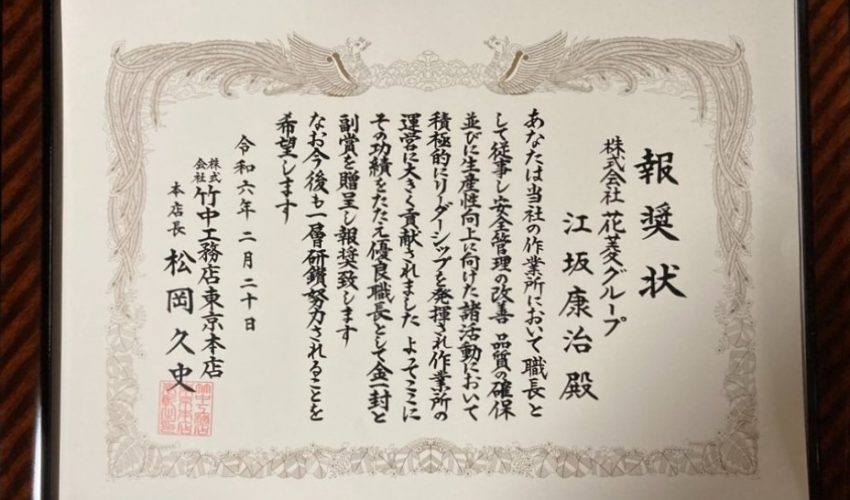 報奨状
株式会社 花菱グループ
江坂康治 殿
あなたは当社の作業所において 職長と
して従事し 安全管理の改善 品質の確保
並びに生産性向上に向けた諸活動において
積極的にリーダーシップを発揮され作業所の
運営に大きく貢献されました よってここに
その功績をたたえ優良職長として金一封と
副賞を贈呈し報奨致します
なお今後も一層研鑽努力されることを
希望します
令和六年 二月二十日
株式会社 竹中工務店東京本店
本店長 松岡久史